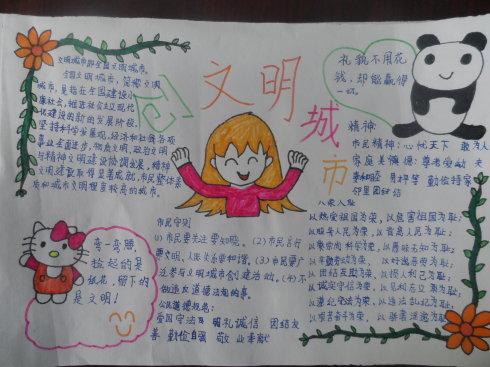 创文明城市
文明城市即全国文明城市。
全国文明城市，简称文明
城市，是指在全面建设小
康社会，推进社会主义现代
化建设的新的发展阶段，
坚持科学发展观，经济和社会各项
事业全面进步，物质文明、政治文明
与精神文明建设协调发展，精神
文明建设取得显著成就，市民整体素
质和城市文明程度较高的城市。
礼貌不用花
钱，却能赢得
一切。
精神：
市民精神：心忧天下 敢为人
家庭美德颂：尊老爱幼 夫
妻和睦 男女平等 勤俭持家
邻里团结
弯一弯腰，
捡起的是
纸花，留下的
是文明！
市民守则
(1) 市民要关注要知晓。(2) 市民言行
要文明，人际关系要和谐。(3) 市民要广
泛参与文明城市创建活动。(4) 不
做违反道德法规的事。
公民道德规范：
爱国守法 明礼诚信 团结友
善 勤俭自强 敬业奉献
八荣八耻
以热爱祖国为荣，以危害祖国为耻；
以服务人民为荣，以背离人民为耻；
以崇尚科学为荣，以愚昧无知为耻；
以辛勤劳动为荣，以好逸恶劳为耻；
以团结互助为荣，以损人利己为耻；
以诚实守信为荣，以见利忘义为耻；
以遵纪守法为荣，以违法乱纪为耻；
以艰苦奋斗为荣，以骄奢淫逸为耻。